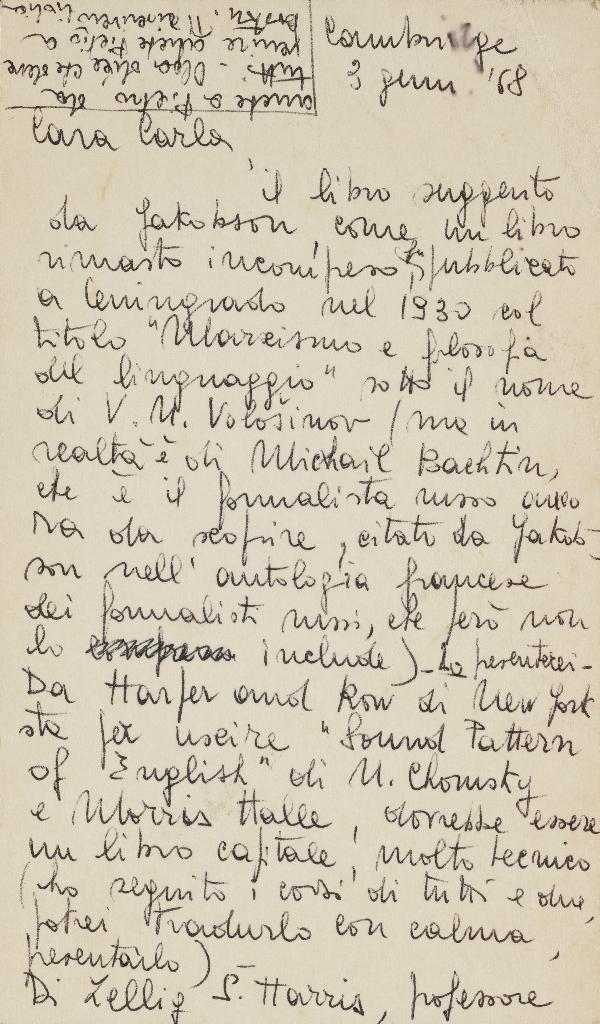 Cambridge
3 genn '68
Cara Carla,
il libro suggerito
da Jakobson, come un libro
rimasto incompreso, fu pubblicato
a Leningrado nel 1930 col
titolo "Marxismo e filosofia
del linguaggio" sotto il nome
di V. N. Vološinov (ma in
realtà è di Michail Bachtin,
che è il formalista russo anco
ra da scoprire, citato da Jakob-
son nell'antologia francese
dei formalisti russi, che però non
lo include). Lo presenterei -
Da Harper and Row di New York
sta per uscire "Sound Pattern
of English" di N. Chomsky
e Morris Halle, dovrebbe essere
un libro capitale, molto tecnico
(ho seguito i corsi di tutti e due,
potrei tradurlo con calma,
presentarlo)
Di Zellig S. Harris, professore
anche a Pietro da
tutti - Olga dice che deve
venire anche Pietro a